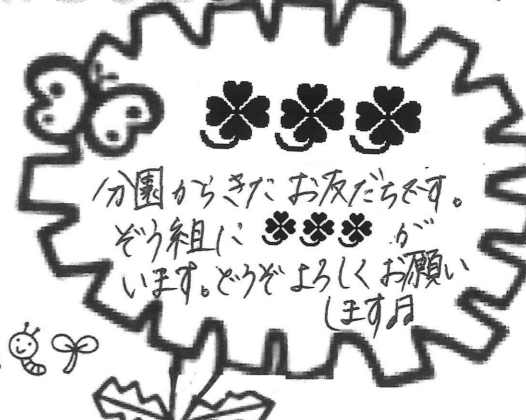 分園からきたお友だちです。
ぞう組に が
います。どうぞよろしくお願い
します♫